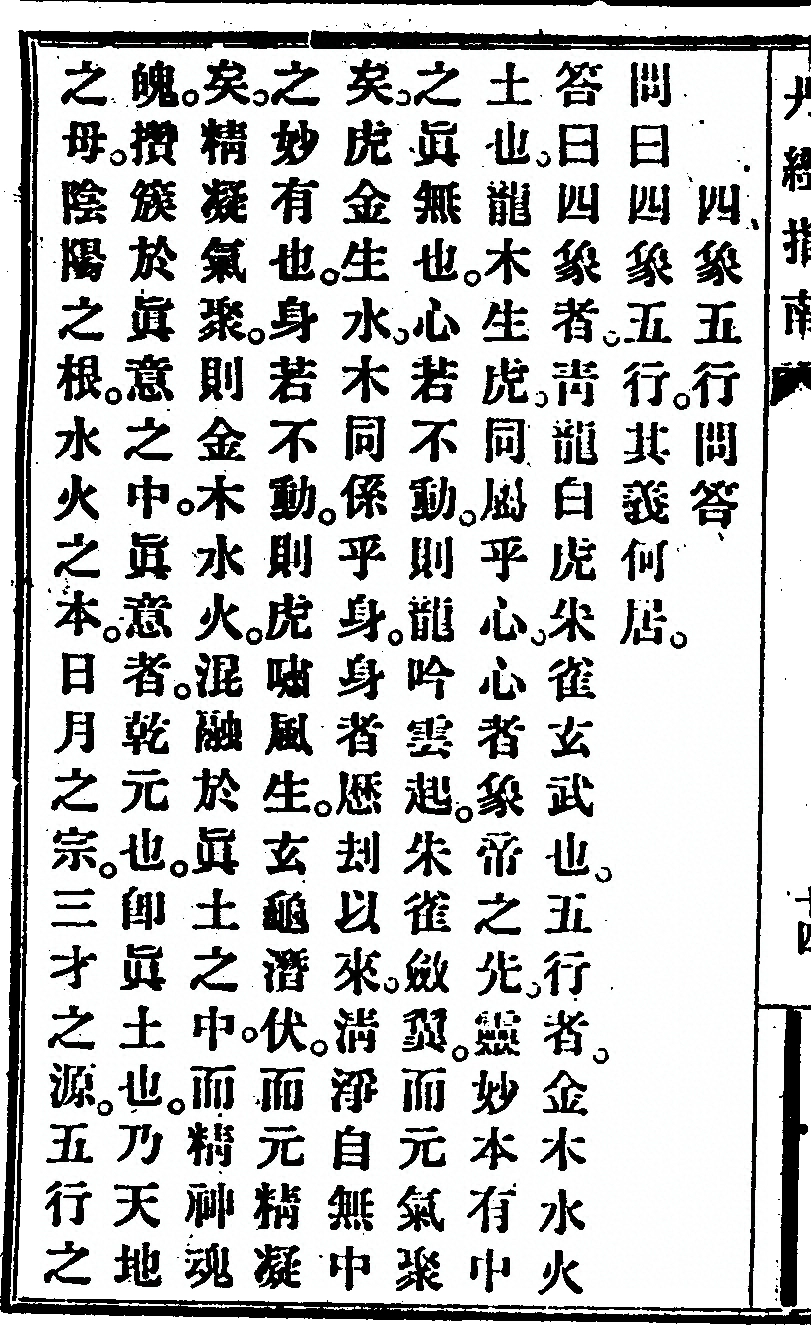 丹經指南
十四
四象五行問答
問曰四象五行。其義何居。
答曰四象者。靑龍白虎朱雀玄武也。五行者。金木水火
土也。龍木生虎。同屬乎心。心者象帝之先。靈妙本有中
之眞無也。心若不動。則龍吟雲起。朱雀斂翼。而元氣聚
矣。虎金生水。木同係乎身。身者歷刦以來。淸淨自無中
之妙有也。身若不動。則虎嘯風生。玄龜潛伏。而元精凝
矣。精凝氣聚。則金木水火。混融於眞土之中。而精神魂
魄。攢簇於眞意之中。眞意者。乾元也。卽眞土也。乃天地
之母。陰陽之根。水火之本。日月之宗。三才之源。五行之